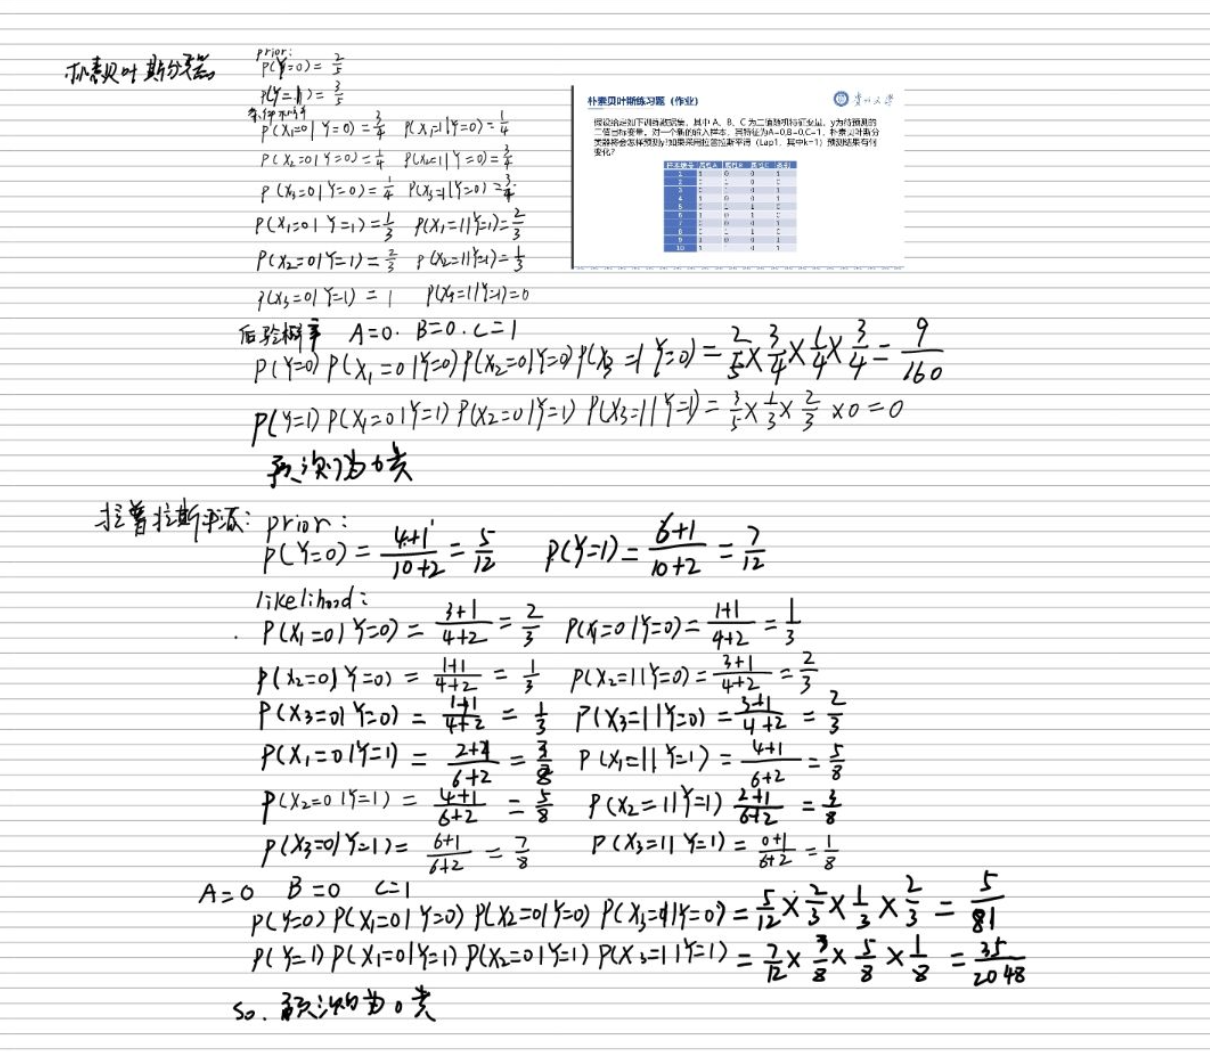 朴素贝叶斯分类器
prior:
P(Y=0) = 2/5
P(Y=1) = 3/5
条件概率
P(X₁=0|Y=0) = 3/4 P(X₁=1|Y=0) = 1/4
P(X₂=0|Y=0) = 1/4 P(X₂=1|Y=0) = 3/4
P(X₃=0|Y=0) = 1/4 P(X₃=1|Y=0) = 3/4
P(X₁=0|Y=1) = 1/3 P(X₁=1|Y=1) = 2/3
P(X₂=0|Y=1) = 2/3 P(X₂=1|Y=1) = 1/3
P(X₃=0|Y=1) = 1 P(X₃=1|Y=1) = 0
朴素贝叶斯练习题(作业)
贵州大学
假设给定如下训练数据集,其中A、B、C为二值随机特征变量,y为待预测的
二值目标变量。对一个新的输入样本,其特征为A=0,B=0,C=1,朴素贝叶斯分
类器将会怎样预测y?如果采用拉普拉斯平滑(Lap1,其中k=1)预测结果有何
变化?
后验概率 A=0. B=0. C=1
P(Y=0) P(X₁=0|Y=0) P(X₂=0|Y=0) P(X₃=1|Y=0) = 2/5 × 3/4 × 1/4 × 3/4 = 9/160
P(Y=1) P(X₁=0|Y=1) P(X₂=0|Y=1) P(X₃=1|Y=1) = 3/5 × 1/3 × 2/3 × 0 = 0
预测为0类
拉普拉斯平滑: prior:
P(Y=0) = 4+1/10+2 = 5/12 P(Y=1) = 6+1/10+2 = 7/12
likelihood:
P(X₁=0|Y=0) = 3+1/4+2 = 2/3 P(X₁=0|Y=0) = 1+1/4+2 = 1/3
P(X₂=0|Y=0) = 1+1/4+2 = 1/3 P(X₂=1|Y=0) = 3+1/4+2 = 2/3
P(X₃=0|Y=0) = 1+1/4+2 = 1/3 P(X₃=1|Y=0) = 3+1/4+2 = 2/3
P(X₁=0|Y=1) = 2+1/6+2 = 3/8 P(X₁=1|Y=1) = 4+1/6+2 = 5/8
P(X₂=0|Y=1) = 4+1/6+2 = 5/8 P(X₂=1|Y=1) 2+1/6+2 = 3/8
P(X₃=0|Y=1) = 6+1/6+2 = 7/8 P(X₃=1|Y=1) = 0+1/6+2 = 1/8
A=0 B=0 C=1
P(Y=0) P(X₁=0|Y=0) P(X₂=0|Y=0) P(X₃=1|Y=0) = 5/12 × 2/3 × 1/3 × 2/3 = 5/81
P(Y=1) P(X₁=0|Y=1) P(X₂=0|Y=1) P(X₃=1|Y=1) = 7/12 × 3/8 × 5/8 × 1/8 = 35/2048
So. 预测为0类